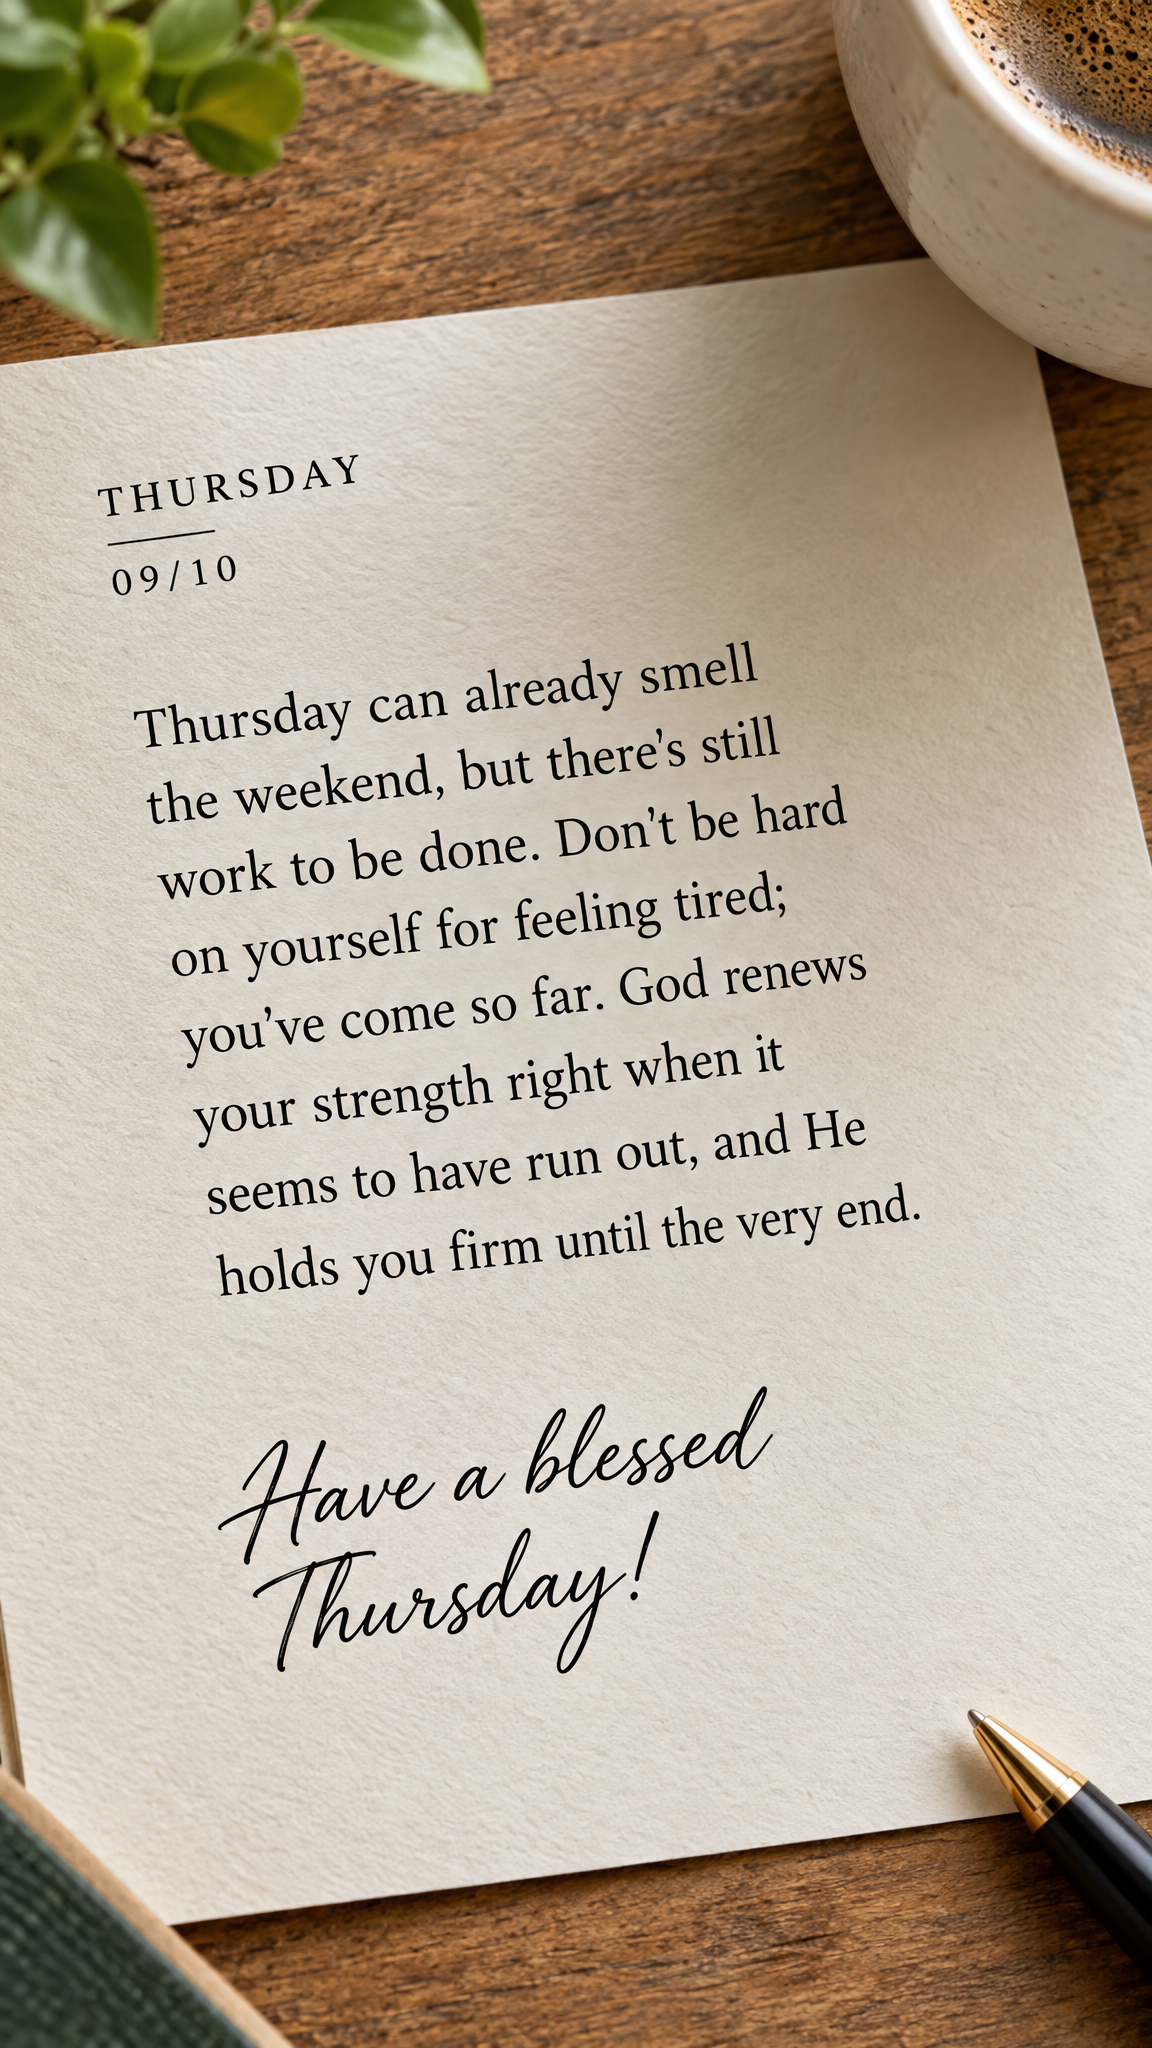 THURSDAY
09/10
Thursday can already smell
the weekend, but there's still
work to be done. Don't be hard
on yourself for feeling tired;
you've come so far. God renews
your strength right when it
seems to have run out, and He
holds you firm until the very end.
Have a blessed
Thursday!